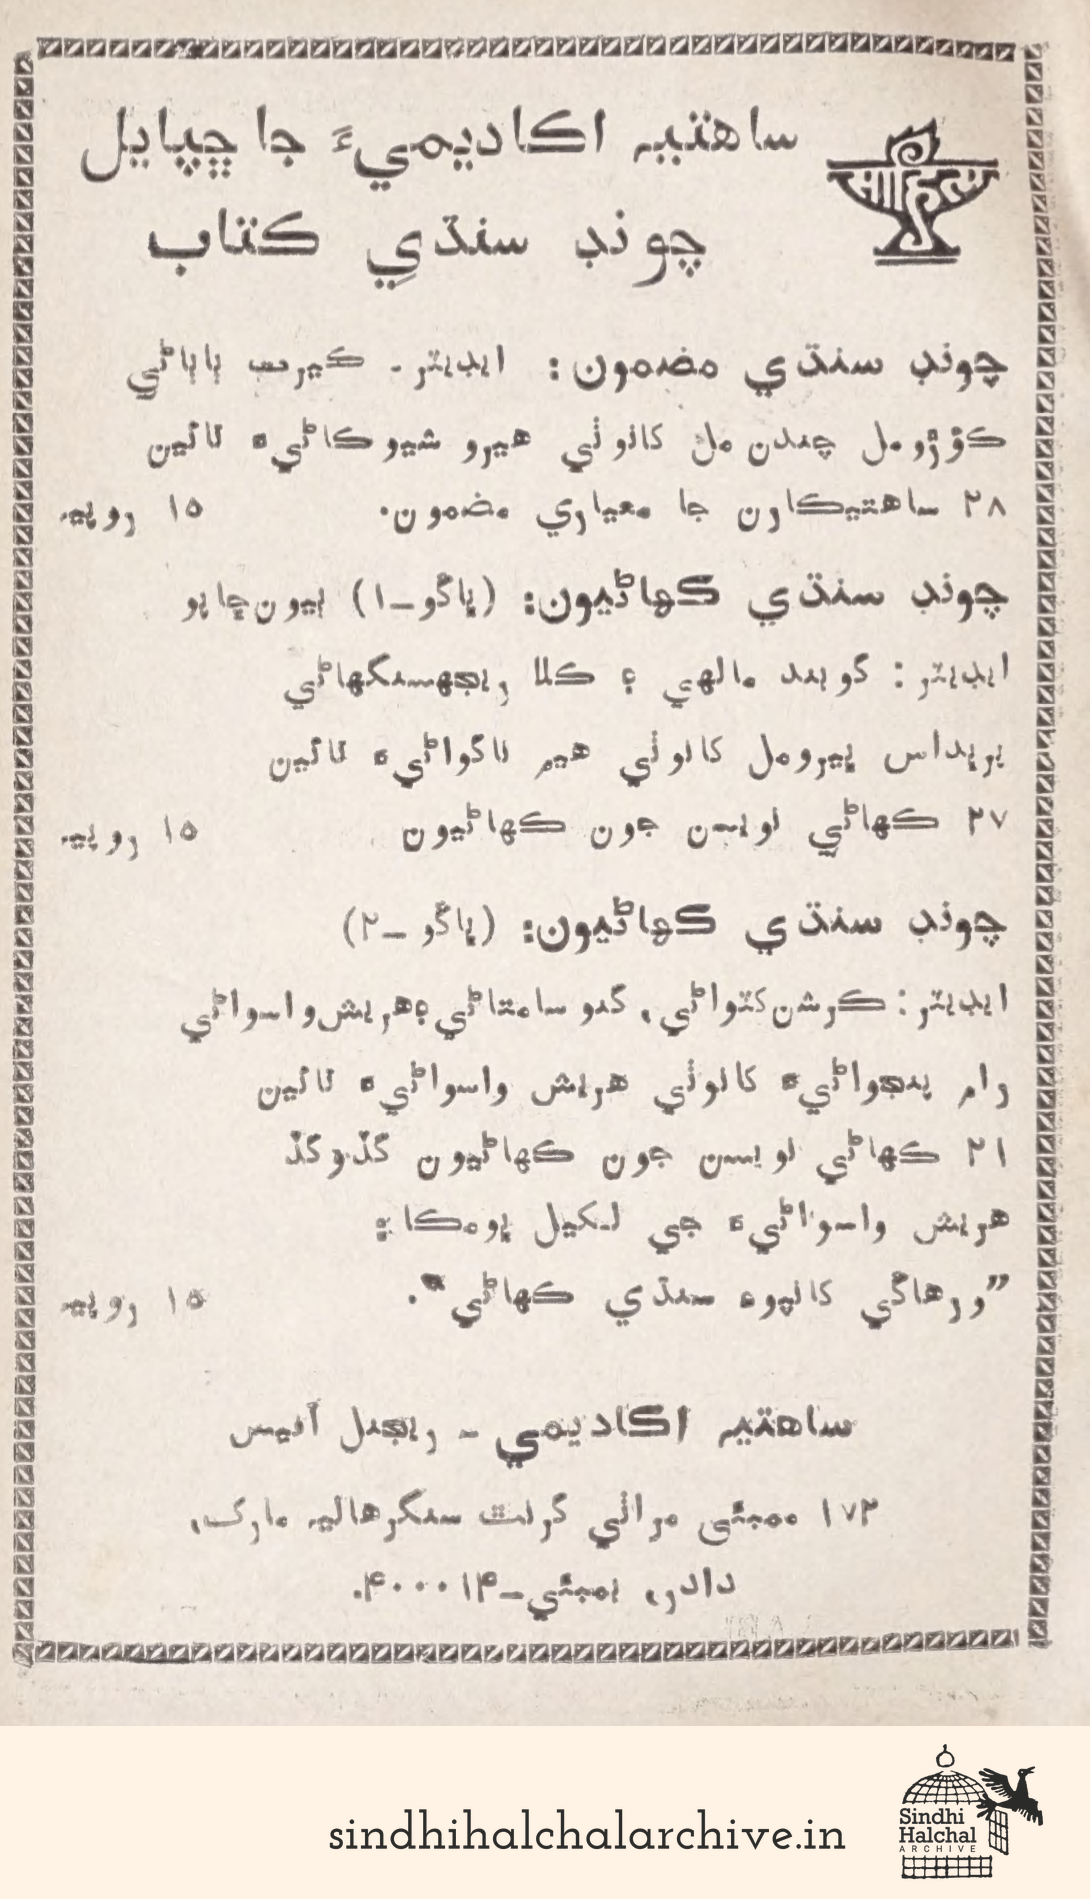 ساهتيه اڪاديميءَ جا ڇپايل
چونڊ سنڌي ڪتاب
چونڊ سنڌي مضمون: ايڊيٽر - ڪيرت ٻاٻاڻي
ڪؤڙومل چندن مل کانوٺي هيرو شيوڪاڻيءَ تائين
۲۸ ساهتيڪارن جا معياري مضمون. ۱۵ روپيه
چونڊ سنڌي ڪهاڻيون: (ڀاڱو-۱) ٻيون ڇاپو
ايڊيٽر: گوبند مالهي ۽ ڪلا ريجهسنگهاڻي
پرڀداس ڀيرومل کانوٺي هيم ناگواڻيءَ تائين
۲۷ ڪهاڻي نويسن جون ڪهاڻيون ۱۵ روپيه
چونڊ سنڌي ڪهاڻيون: (ڀاڱو-۲)
ايڊيٽر: ڪرشن کٽواڻي، گنو سامتاڻي ۽ هريش واسواڻي
رام پنجواڻيءَ کانوٺي هريش واسواڻيءَ تائين
۲۱ ڪهاڻي نويسن جون ڪهاڻيون گڏوگڏ
هريش واسواڻيءَ جي لکيل ڀومڪا به
”ورهاڱي کانپوءِ سنڌي ڪهاڻي“. ۱۵ روپيه
ساهتيه اڪاديمي - ريجنل آفيس
۱۷۲ ممبئي مراٺي گرنٿ سنگرهاليه مارگ،
دادر، بمبئي-۴۰۰۰۱۴.
sindhihalchalarchive.in
Sindhi
Halchal
ARCHIVE